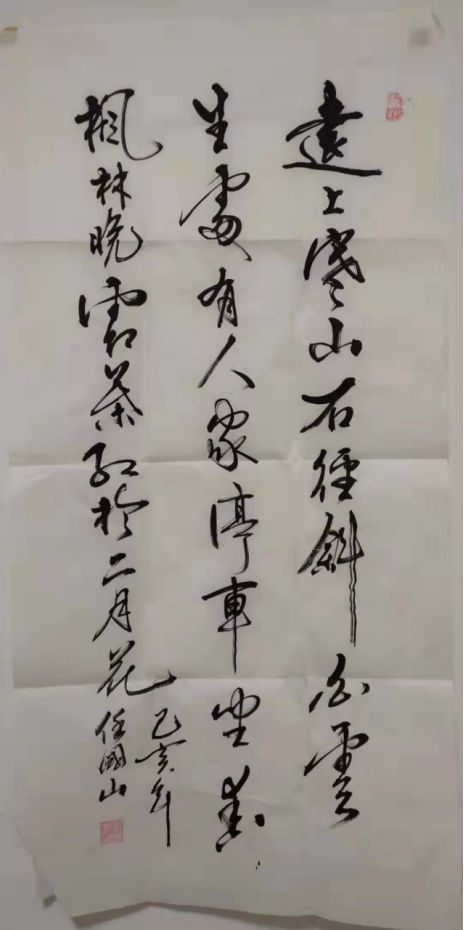 遠上寒山石徑斜白雲
生處有人家停車坐愛
楓林晚霜葉紅於二月花
己亥年
任國山